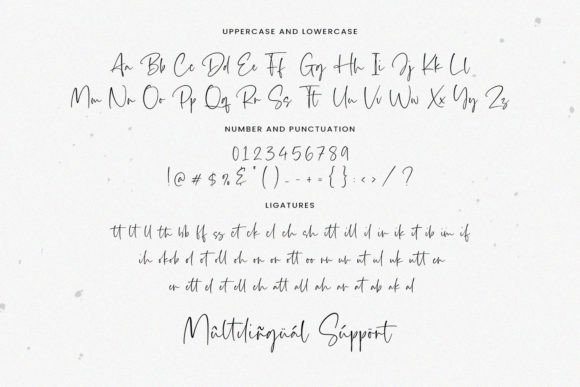 UPPERCASE AND LOWERCASE
Aa Bb Cc Dd Ee Ff Gg Hh Ii Jj Kk Ll
Mm Nn Oo Pp Qq Rr Ss Tt Uu Vv Ww Xx Yy Zz
NUMBER AND PUNCTUATION
0123456789
!@ # $ % & * ( ) - - + = { } : < > / ?
LIGATURES
tt lt ll th bb ff ss ct ck cl ch sh itt ill il in ik it ib im if
ih ot oll oh on or ott oo ur ut ul uk utt en
er ett el et ell eh att all ah an at ab ak al
Mûltdiñgüál Súppört